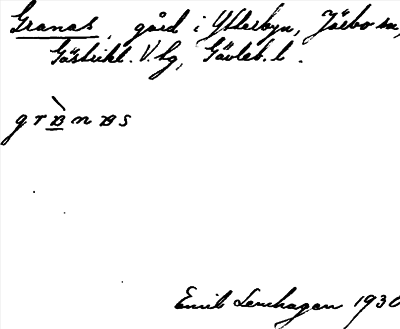 Granas, gård i Ytterbyn, Järbo sn,
Gästrikl. V. tg, Gävleb. l.
grana̱s
Emil Lenhagen 1930